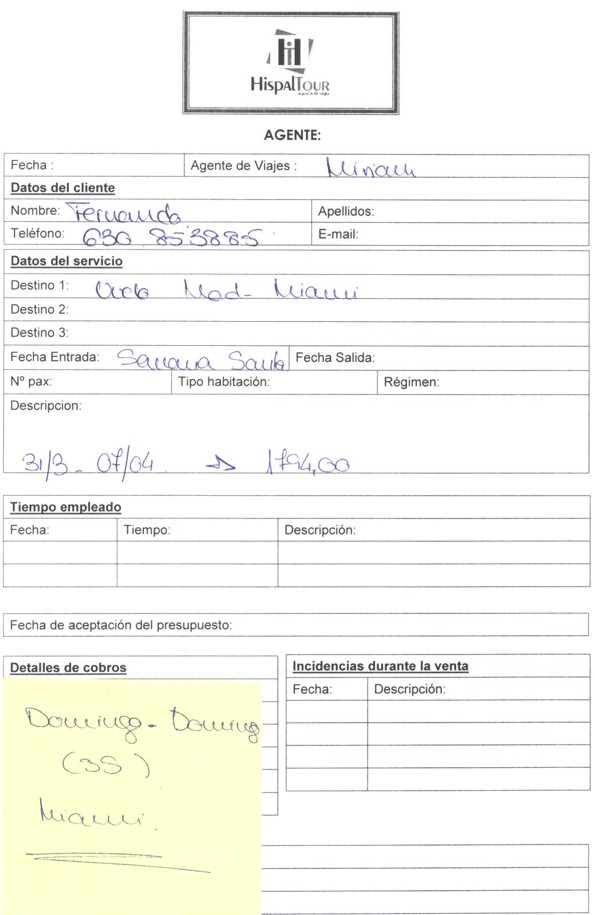 HISPALTOUR
AGENTE:
Fecha : Agente de Viajes : Miriam
Datos del cliente
Nombre: Fernando Apellidos:
Teléfono: 630 853885 E-mail:
Datos del servicio
Destino 1: Vuelo Mad- Miami
Destino 2:
Destino 3:
Fecha Entrada: Semana Santa Fecha Salida:
Nº pax: Tipo habitación: Régimen:
Descripcion:
31/3 - 07/04 → 1794,00
Tiempo empleado
Fecha: Tiempo: Descripción:
Fecha de aceptación del presupuesto:
Detalles de cobros
Incidencias durante la venta
Fecha: Descripción:
Domingo - Domingo
(3S)
Miami.